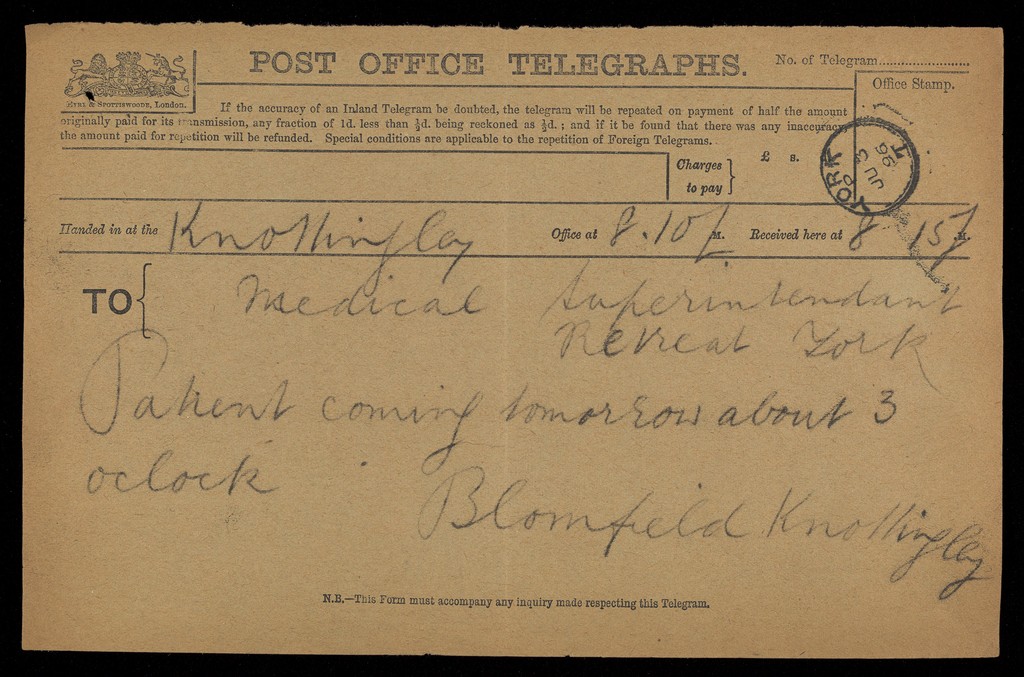 POST OFFICE TELEGRAPHS.
No. of Telegram
Office Stamp.
EYRE & SPOTTISWOODE, LONDON.
If the accuracy of an Inland Telegram be doubted, the telegram will be repeated on payment of half the amount
originally paid for its transmission, any fraction of 1d. less than ½d. being reckoned as ½d.; and if it be found that there was any inaccuracy,
the amount paid for repetition will be refunded. Special conditions are applicable to the repetition of Foreign Telegrams.
Charges
to pay
£ s.
YORK
JU
96
Handed in at the Knottingley Office at 8.10 M. Received here at 8 15 M.
TO Medical Superintendant
Retreat York
Patient coming tomorrow about 3
oclock
Blomfield Knottingley
N.B.—This Form must accompany any inquiry made respecting this Telegram.